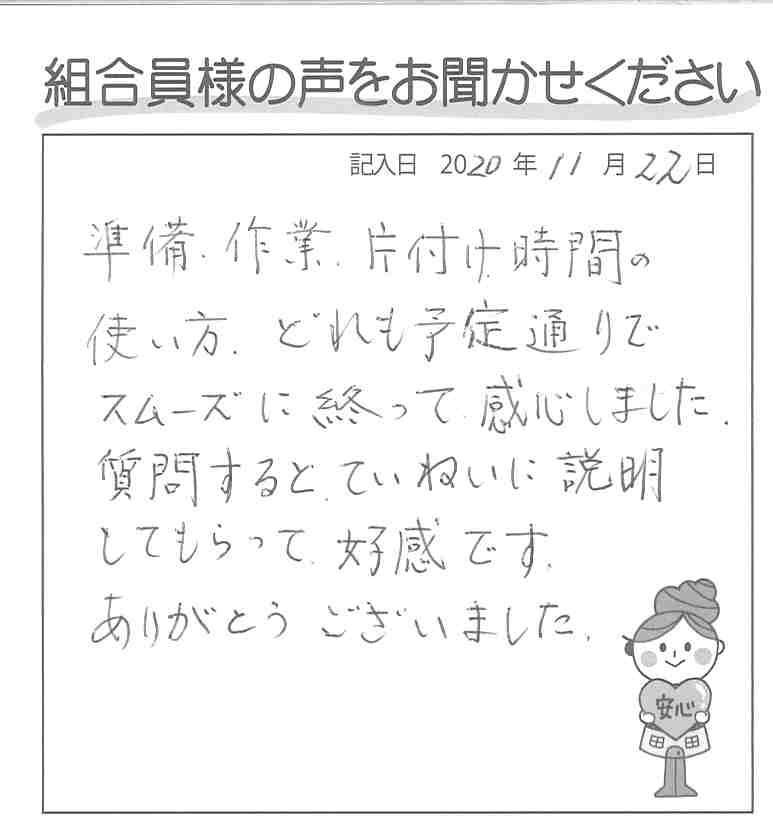 組合員様の声をお聞かせください
記入日 2020年11月22日
準備、作業、片付け、時間の
使い方、どれも予定通りで
スムーズに終って、感心しました。
質問すると、ていねいに説明
してもらって、好感です。
ありがとうございました。
安心